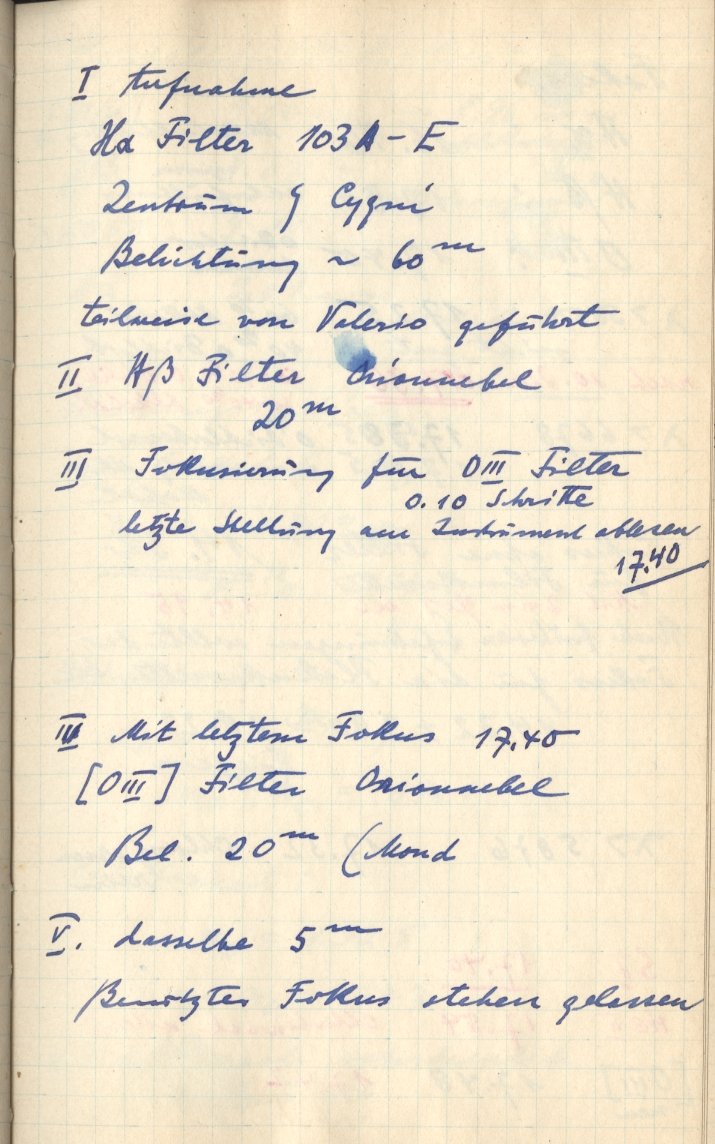 I Aufnahme
Hα Filter 103A-E
Zentrum ς Cygni
Belichtung ~ 60ᵐ
teilweise von Valerio geführt
II Hβ Filter Orionnebel
20ᵐ
III Fokusierung für OIII Filter
0.10 Schritte
letzte Stellung am Instrument ablesen
17.40
IV Mit letztem Fokus 17.40
[OIII] Filter Orionnebel
Bel. 20ᵐ (Mond
V. dasselbe 5ᵐ
Benütztes Fokus stehen gelassen